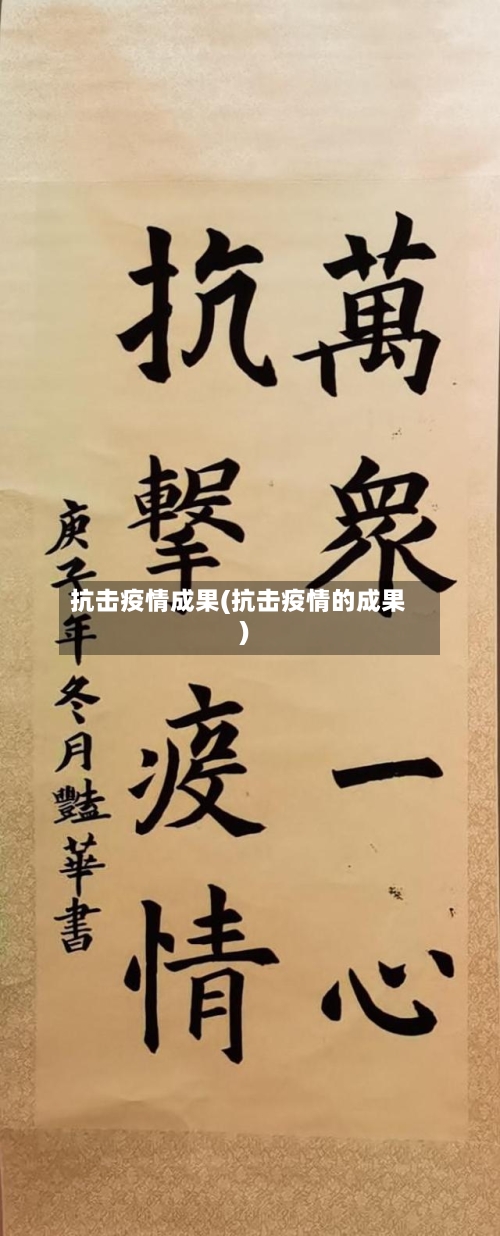 萬衆一心
抗擊疫情
庚子年冬月豔華書
抗击疫情成果(抗击疫情的成果
)